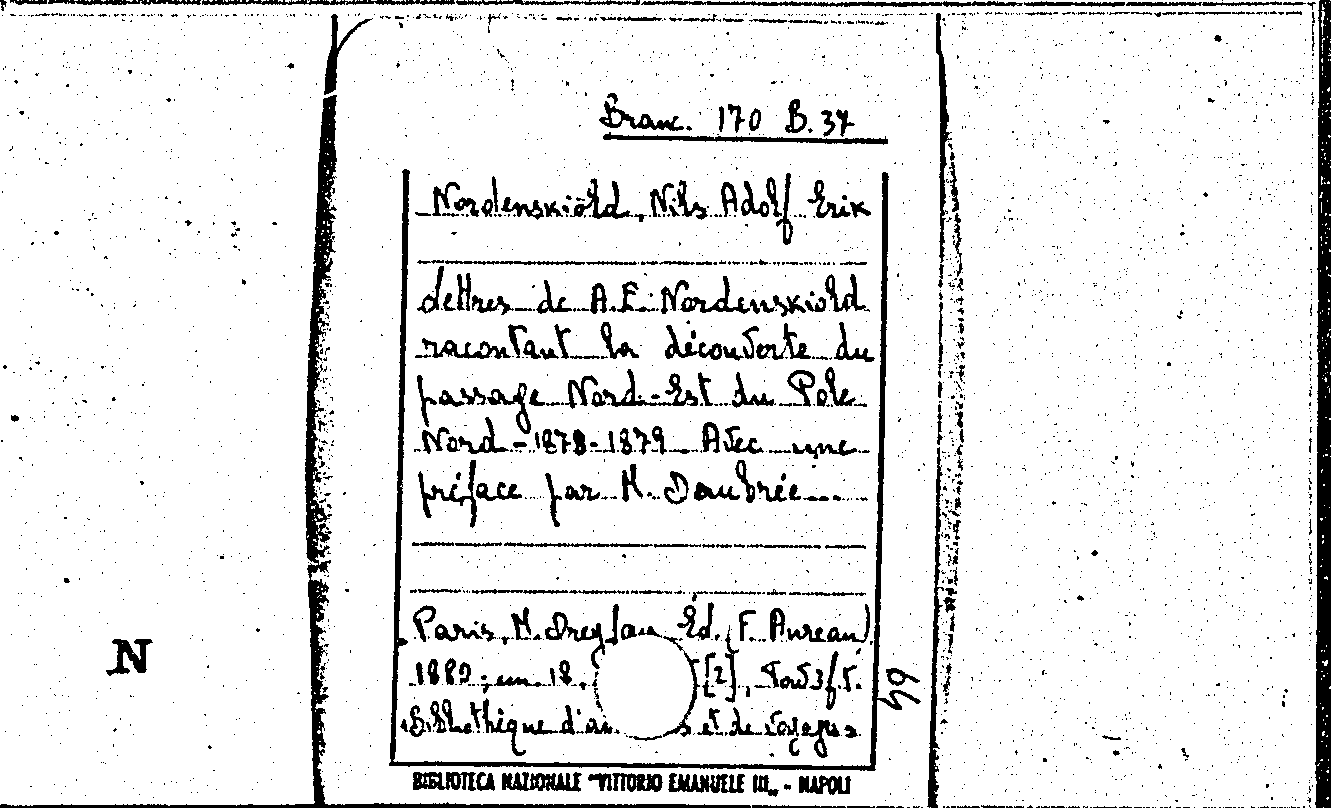 Branc. 170 B. 37
Nordenskiöld, Nils Adolf Erik
Lettres de A. E. Nordenskiold
racontant la découverte du
passage Nord-Est du Pole
Nord - 1878-1879. Avec une
préface par M. Daubrée...
Paris, M. Dreyfau Éd. (F. Aureau)
1880; in. 18. [2], 3 f.t.
Bibliothèque d'a et de voyages
64
N
BIBLIOTECA NAZIONALE "VITTORIO EMANUELE III„ - NAPOLI